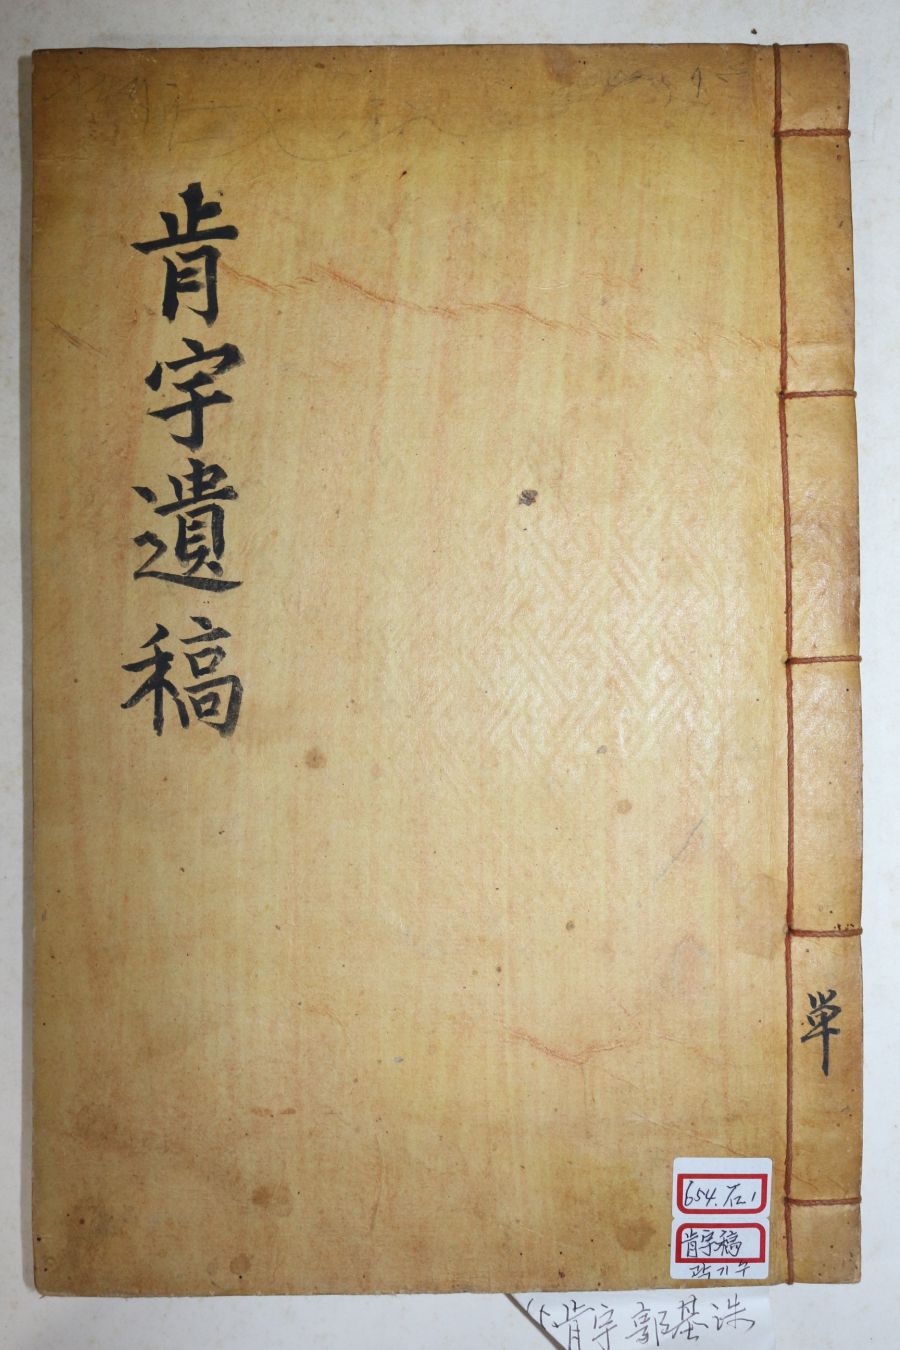 肯宇遺稿
单
654. 石1
肯宇稿
곽기수
肯宇 郭基洙